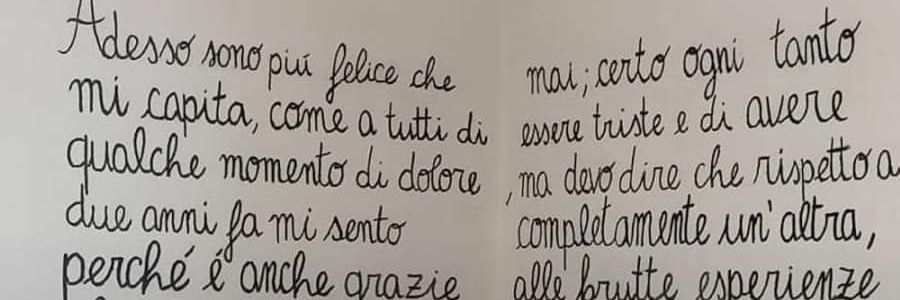 Adesso sono piú felice che mai; certo ogni tanto
mi capita, come a tutti di essere triste e di avere
qualche momento di dolore, ma devo dire che rispetto a
due anni fa mi sento completamente un'altra,
perché é anche grazie alle brutte esperienze